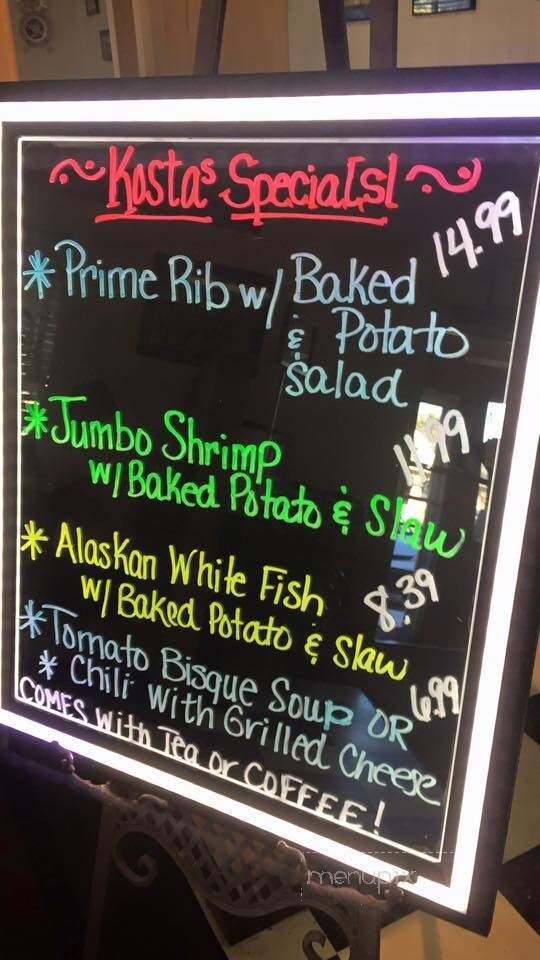 ~ Kostas Special[s] ~
14.99
* Prime Rib w/ Baked
& Potato
Salad
11.99
* Jumbo Shrimp
w/ Baked Potato & Slaw
* Alaskan White Fish 8.39
w/ Baked Potato & Slaw
* Tomato Bisque Soup OR 6.99
* Chili with Grilled Cheese
COMES with Tea or COFFEE!
menupix